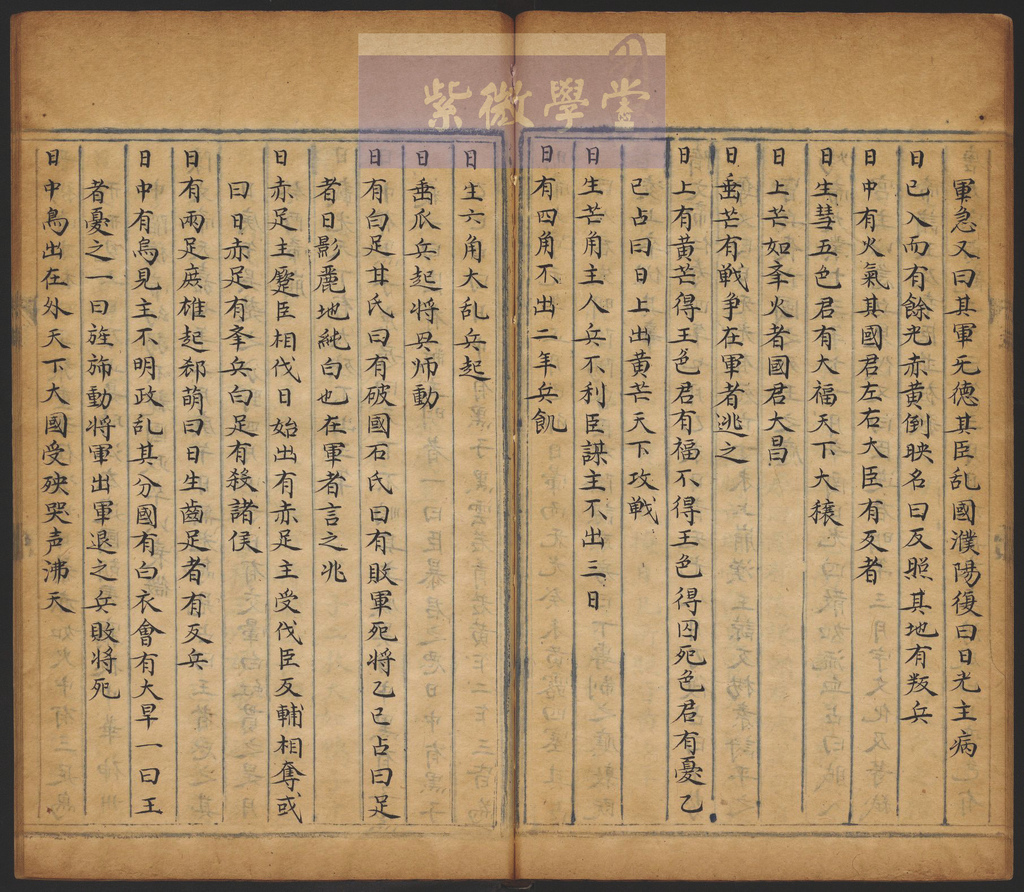 紫微學堂
軍急又曰其軍无德其臣乱國濮陽復曰日光主病
日已入而有餘光赤黄倒映名曰反照其地有叛兵
日中有火氣其國君左右大臣有反者
日生彗五色君有大福天下大穰
日上芒如夆火者國君大昌
日垂芒有戦争在軍者逃之
日上有黄芒得王色君有福不得王色得囚死色君有憂乙
巳占曰日上出黄芒天下攻戦
日生芒角主人兵不利臣謀主不出三日
日有四角不出二年兵飢
日生六角大乱兵起
日垂瓜兵起将軍师動
日有白足甘氏曰有破國石氏曰有敗軍死将乙巳占曰足
者日影麗地純白也在軍者言之兆
日赤足主蹙臣相伐日始出有赤足主受伐臣反輔相奪或
曰日赤足有夆兵白足有殺諸侯
日有兩足庶雄起郄萌曰日生齒足者有反兵
日中有烏見主不明政乱其分國有白衣會有大旱一曰王
者憂之一曰旌斾動将軍出軍退之兵敗将死
日中烏出在外天下大國受殃哭声沸天